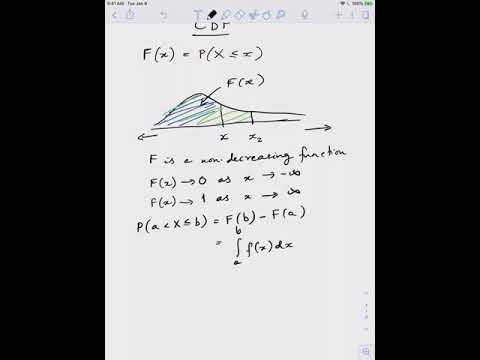 9:41 AM Tue Jan 9
100%
CDF
F(x) = P(X ≤ x)
F(x)
x x₂
F is a non-decreasing function
F(x) → 0 as x → -∞
F(x) → 1 as x → ∞
P(a < X ≤ b) = F(b) - F(a)
= ∫ₐᵇ f(x) dx